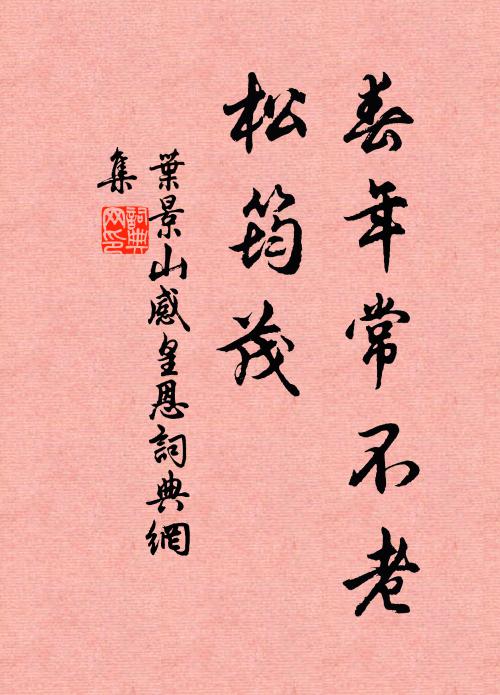 春年常不老
松筠茂
葉景山感皇恩詞典網
集
詞典
网印